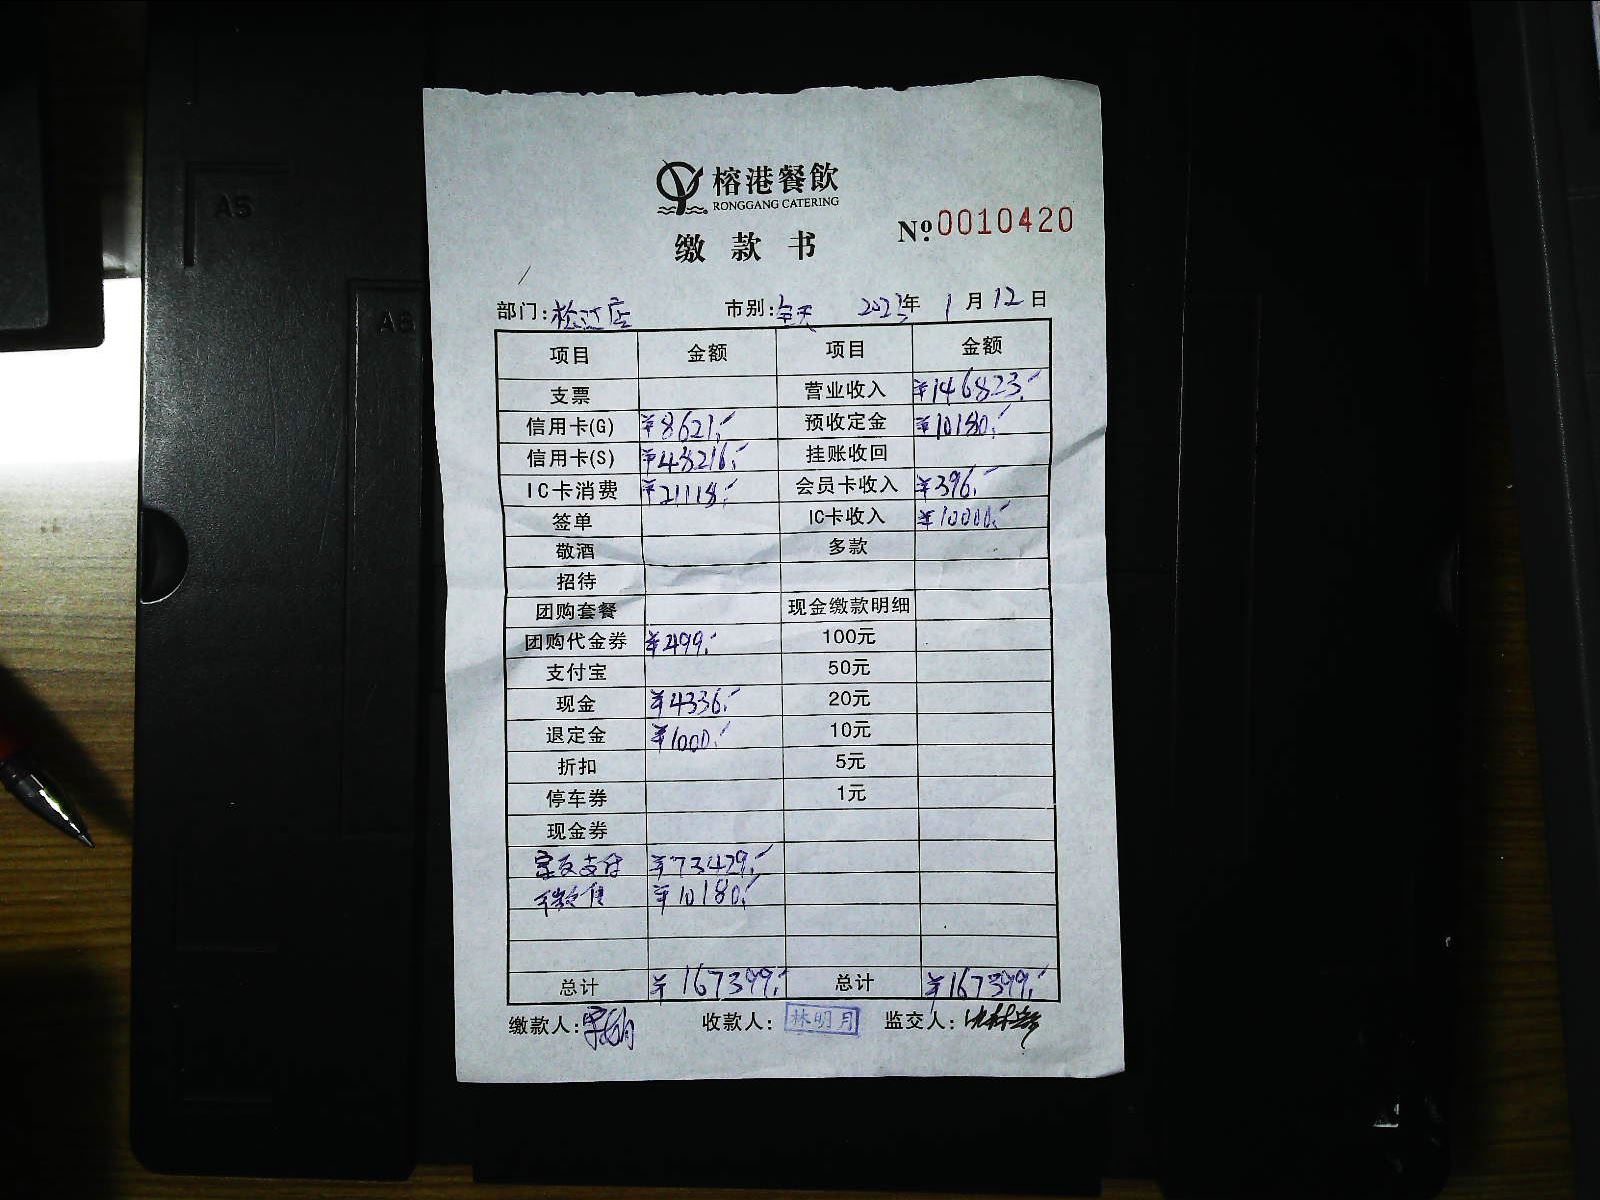 A5
A6
榕港餐飲
RONGGANG CATERING
№ 0010420
缴款书
部门: 店 市别: 全天 2023年 1月12日
项目 金额 项目 金额
支票 营业收入 ¥146823.-
信用卡(G) ¥8621.- 预收定金 ¥10180.-
信用卡(S) ¥48216.- 挂账收回
IC卡消费 ¥21118.- 会员卡收入 ¥396.-
签单 IC卡收入 ¥10000.-
敬酒 多款
招待
团购套餐 现金缴款明细
团购代金券 ¥499.- 100元
支付宝 50元
现金 ¥4336.- 20元
退定金 ¥1000.- 10元
折扣 5元
停车券 1元
现金券
支付 ¥73429.-
¥10180.-
总计 ¥167399.- 总计 ¥167399.-
缴款人: 收款人: 林明月 监交人: